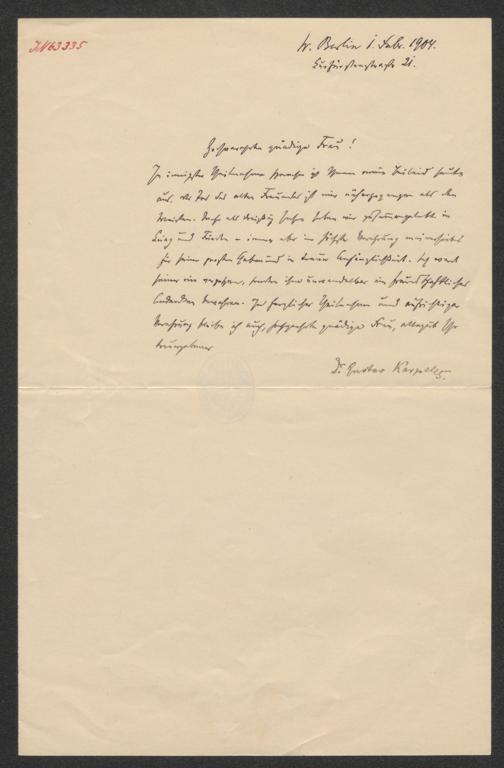 IN 63335
W. Berlin 1. Febr. 1904.
Kurfürstenstraße 21.
Hochverehrte gnädige Frau!
In innigster Theilnahme spreche ich Ihnen mein Beileid heute
aus. Der Tod des alten Freundes ist mir näher gegangen als den
Meisten. Mehr als dreißig Jahre haben wir zusammengelebt in
Krieg und Frieden – immer aber in höchster Verehrung meinerseits
für seine großen und in treuer Anhänglichkeit. Ich werd
seiner nie vergessen, sondern ihm unwandelbar ein freundschaftliches
Andenken bewahren. In herzlicher Theilnahme und aufrichtiger
Verehrung bleibe ich auch, hochverehrte gnädige Frau, allezeit Ihr
treuergebener
Dr. Gustav Karpeles